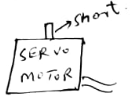 short.
SERVO
MOTOR